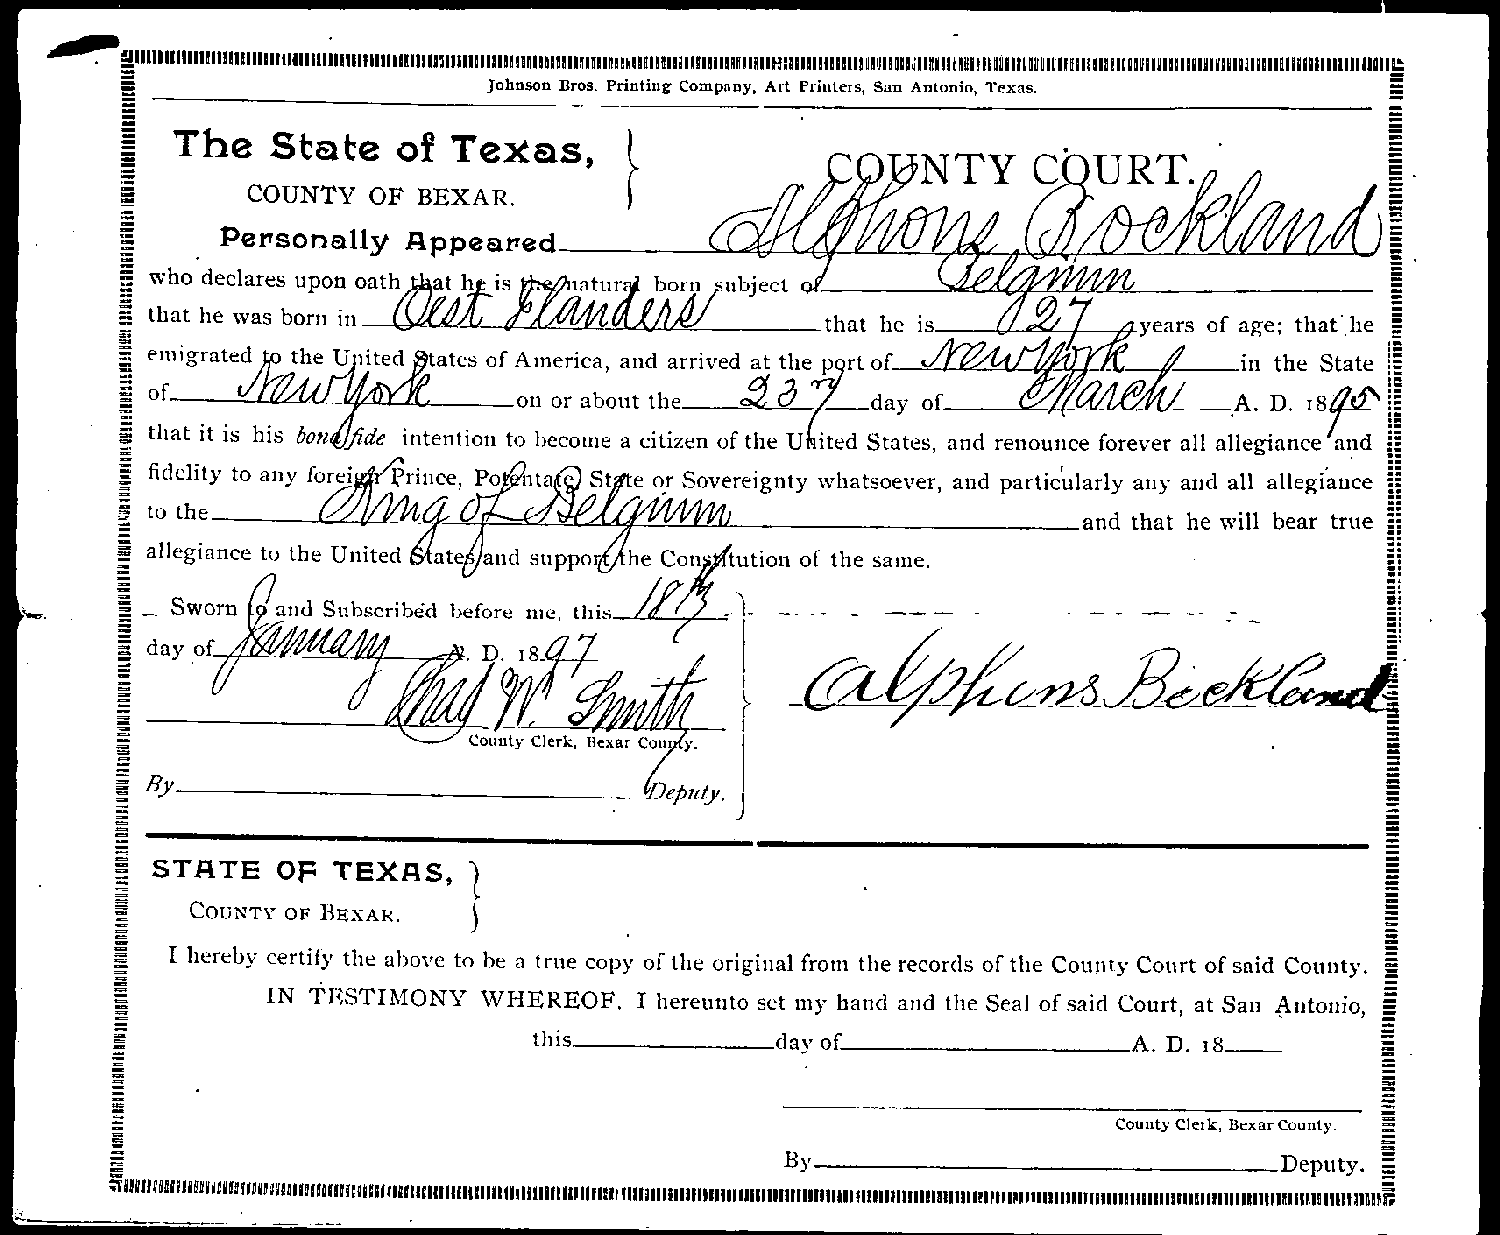 Johnson Bros. Printing Company, Art Printers, San Antonio, Texas.
The State of Texas,
COUNTY OF BEXAR.
COUNTY COURT.
Personally Appeared Alphons Bockland
who declares upon oath that he is the natural born subject of Belgium
that he was born in Oest Flanders that he is 27 years of age; that he
emigrated to the United States of America, and arrived at the port of New York in the State
of New York on or about the 23 day of March A. D. 1895
that it is his bona fide intention to become a citizen of the United States, and renounce forever all allegiance and
fidelity to any foreign Prince, Potentate, State or Sovereignty whatsoever, and particularly any and all allegiance
to the King of Belgium and that he will bear true
allegiance to the United States and support the Constitution of the same.
Sworn to and Subscribed before me, this 18th
day of January A. D. 1897
Alphons Bockland
Thad W. Smith
County Clerk, Bexar County.
By Deputy.
STATE OF TEXAS,
COUNTY OF BEXAR.
I hereby certify the above to be a true copy of the original from the records of the County Court of said County.
IN TESTIMONY WHEREOF, I hereunto set my hand and the Seal of said Court, at San Antonio,
this day of A. D. 18
County Clerk, Bexar County.
By Deputy.